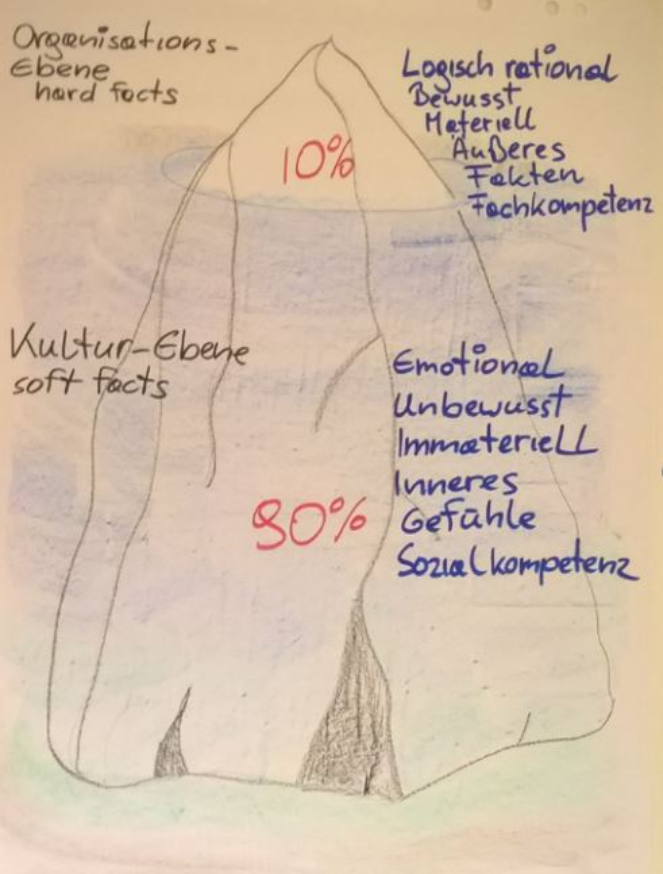 Organisations-
Ebene
hard facts
Logisch rational
Bewusst
Materiell
Äußeres
Fakten
Fachkompetenz
10%
Kultur-Ebene
soft facts
Emotional
Unbewusst
Immateriell
Inneres
Gefühle
Sozialkompetenz
90%